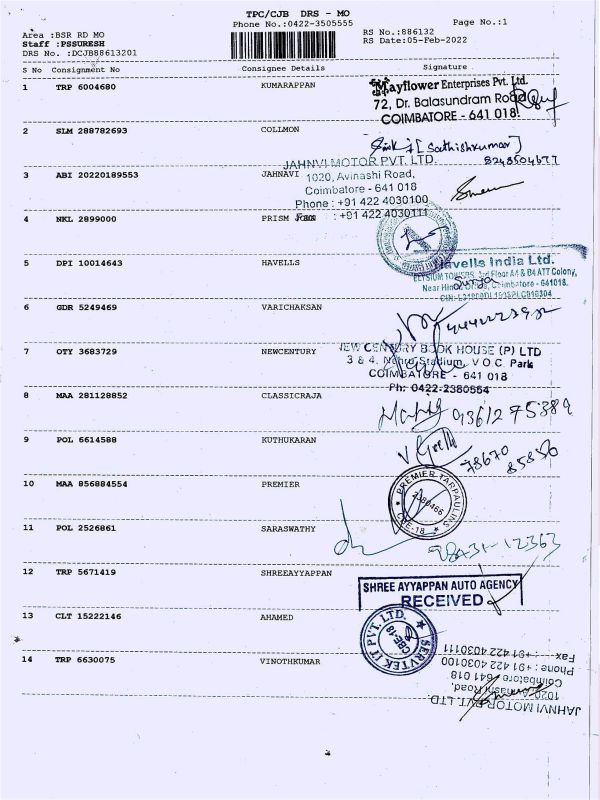 TPC/CJB DRS - MO
Phone No.:0422-3505555
Page No.:1
Area :BSR RD MO
Staff :PSSURESH
DRS No. :DCJB88613201
RS No.:886132
RS Date:05-Feb-2022
S No Consignment No Consignee Details Signature
1 TRP 6004680 KUMARAPPAN
Mayflower Enterprises Pvt. Ltd.
72, Dr. Balasundram Road
COIMBATORE - 641 018.
2 SLM 288782693 COLLMON
[Sathishkumar]
8248504677
3 ABI 20220189553 JAHNAVI
JAHNVI MOTOR PVT. LTD.
1020, Avinashi Road,
Coimbatore - 641 018
Phone : +91 422 4030100
Fax : +91 422 4030111
4 NKL 2899000 PRISM JOHN
5 DPI 10014643 HAVELLS
Havells India Ltd.
ELYSIUM TOWERS, 3rd Floor A4 & B4 ATT Colony,
Coimbatore - 641018.
6 GDR 5249469 VARICHAKSAN
7 OTY 3683729 NEWCENTURY
NEW CENTURY BOOK HOUSE (P) LTD
3 & 4, Nehru Stadium, V O C. Park
COIMBATORE - 641 018
Ph: 0422-2380554
8 MAA 281128852 CLASSICRAJA
9361275389
9 POL 6614588 KUTHUKARAN
78670
85856
10 MAA 856884554 PREMIER
PREMIER TARPAULINS
2380466
CBE-18
11 POL 2526861 SARASWATHY
98431-12363
12 TRP 5671419 SHREEAYYAPPAN
SHREE AYYAPPAN AUTO AGENCY
RECEIVED
13 CLT 15222146 AHAMED
SERVTEK IT PVT. LTD.
CBE-18
14 TRP 6630075 VINOTHKUMAR
JAHNVI MOTOR PVT. LTD.
1020, Avinashi Road,
Coimbatore - 641 018
Phone : +91 422 4030100
Fax : +91 422 4030111